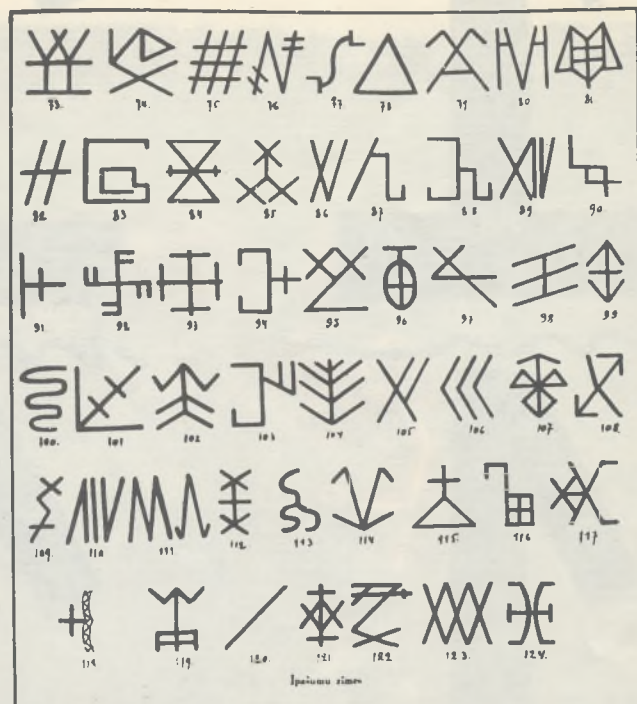 73. 74. 75 76 77. 78 79 80 81
82 83 84 85 86 87 88 89 90
91 92 93 94 95 96 97 98 99
100. 101 102 103 104 105 106 107 108.
109. 110 111 112 113. 114 115. 116 117
118 119. 120. 121 122 123. 124.
Īpašumu zīmes